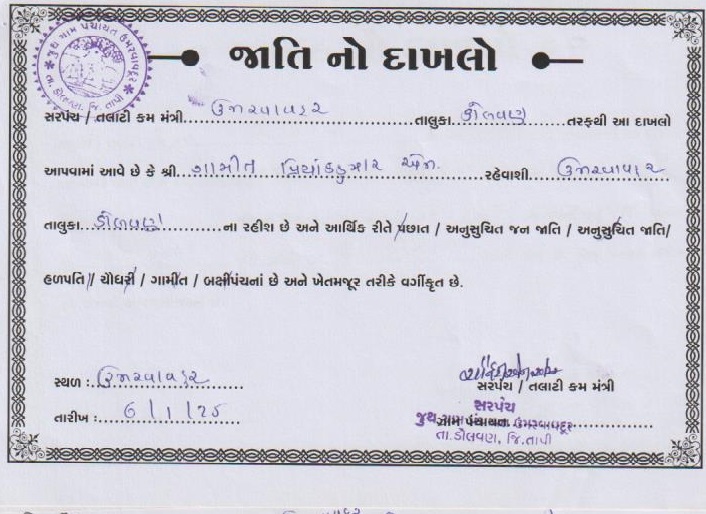 જુથ ગ્રામ પંચાયત ઉમરવાવદુર
તા. ડોલવણ, જિ. તાપી
જાતિ નો દાખલો
સરપંચ / તલાટી કમ મંત્રી ઉમરવાવદુર તાલુકા ડોલવણ તરફથી આ દાખલો
આપવામાં આવે છે કે શ્રી ગામીત પ્રિયાંકકુમાર એમ. રહેવાશી ઉમરવાવદુર
તાલુકા ડોલવણ ના રહીશ છે અને આર્થિક રીતે પછાત / અનુસુચિત જન જાતિ / અનુસુચિત જાતિ/
હળપતિ / ચૌધરી / ગામીત / બક્ષીપંચનાં છે અને ખેતમજૂર તરીકે વર્ગીકૃત છે.
સ્થળ : ઉમરવાવદુર
સરપંચ / તલાટી કમ મંત્રી
તારીખ : 6/1/25
સરપંચ
ગ્રામ પંચાયત
જુથ ગ્રામ પંચાયત ઉમરવાવદુર
તા.ડોલવણ, જિ.તાપી